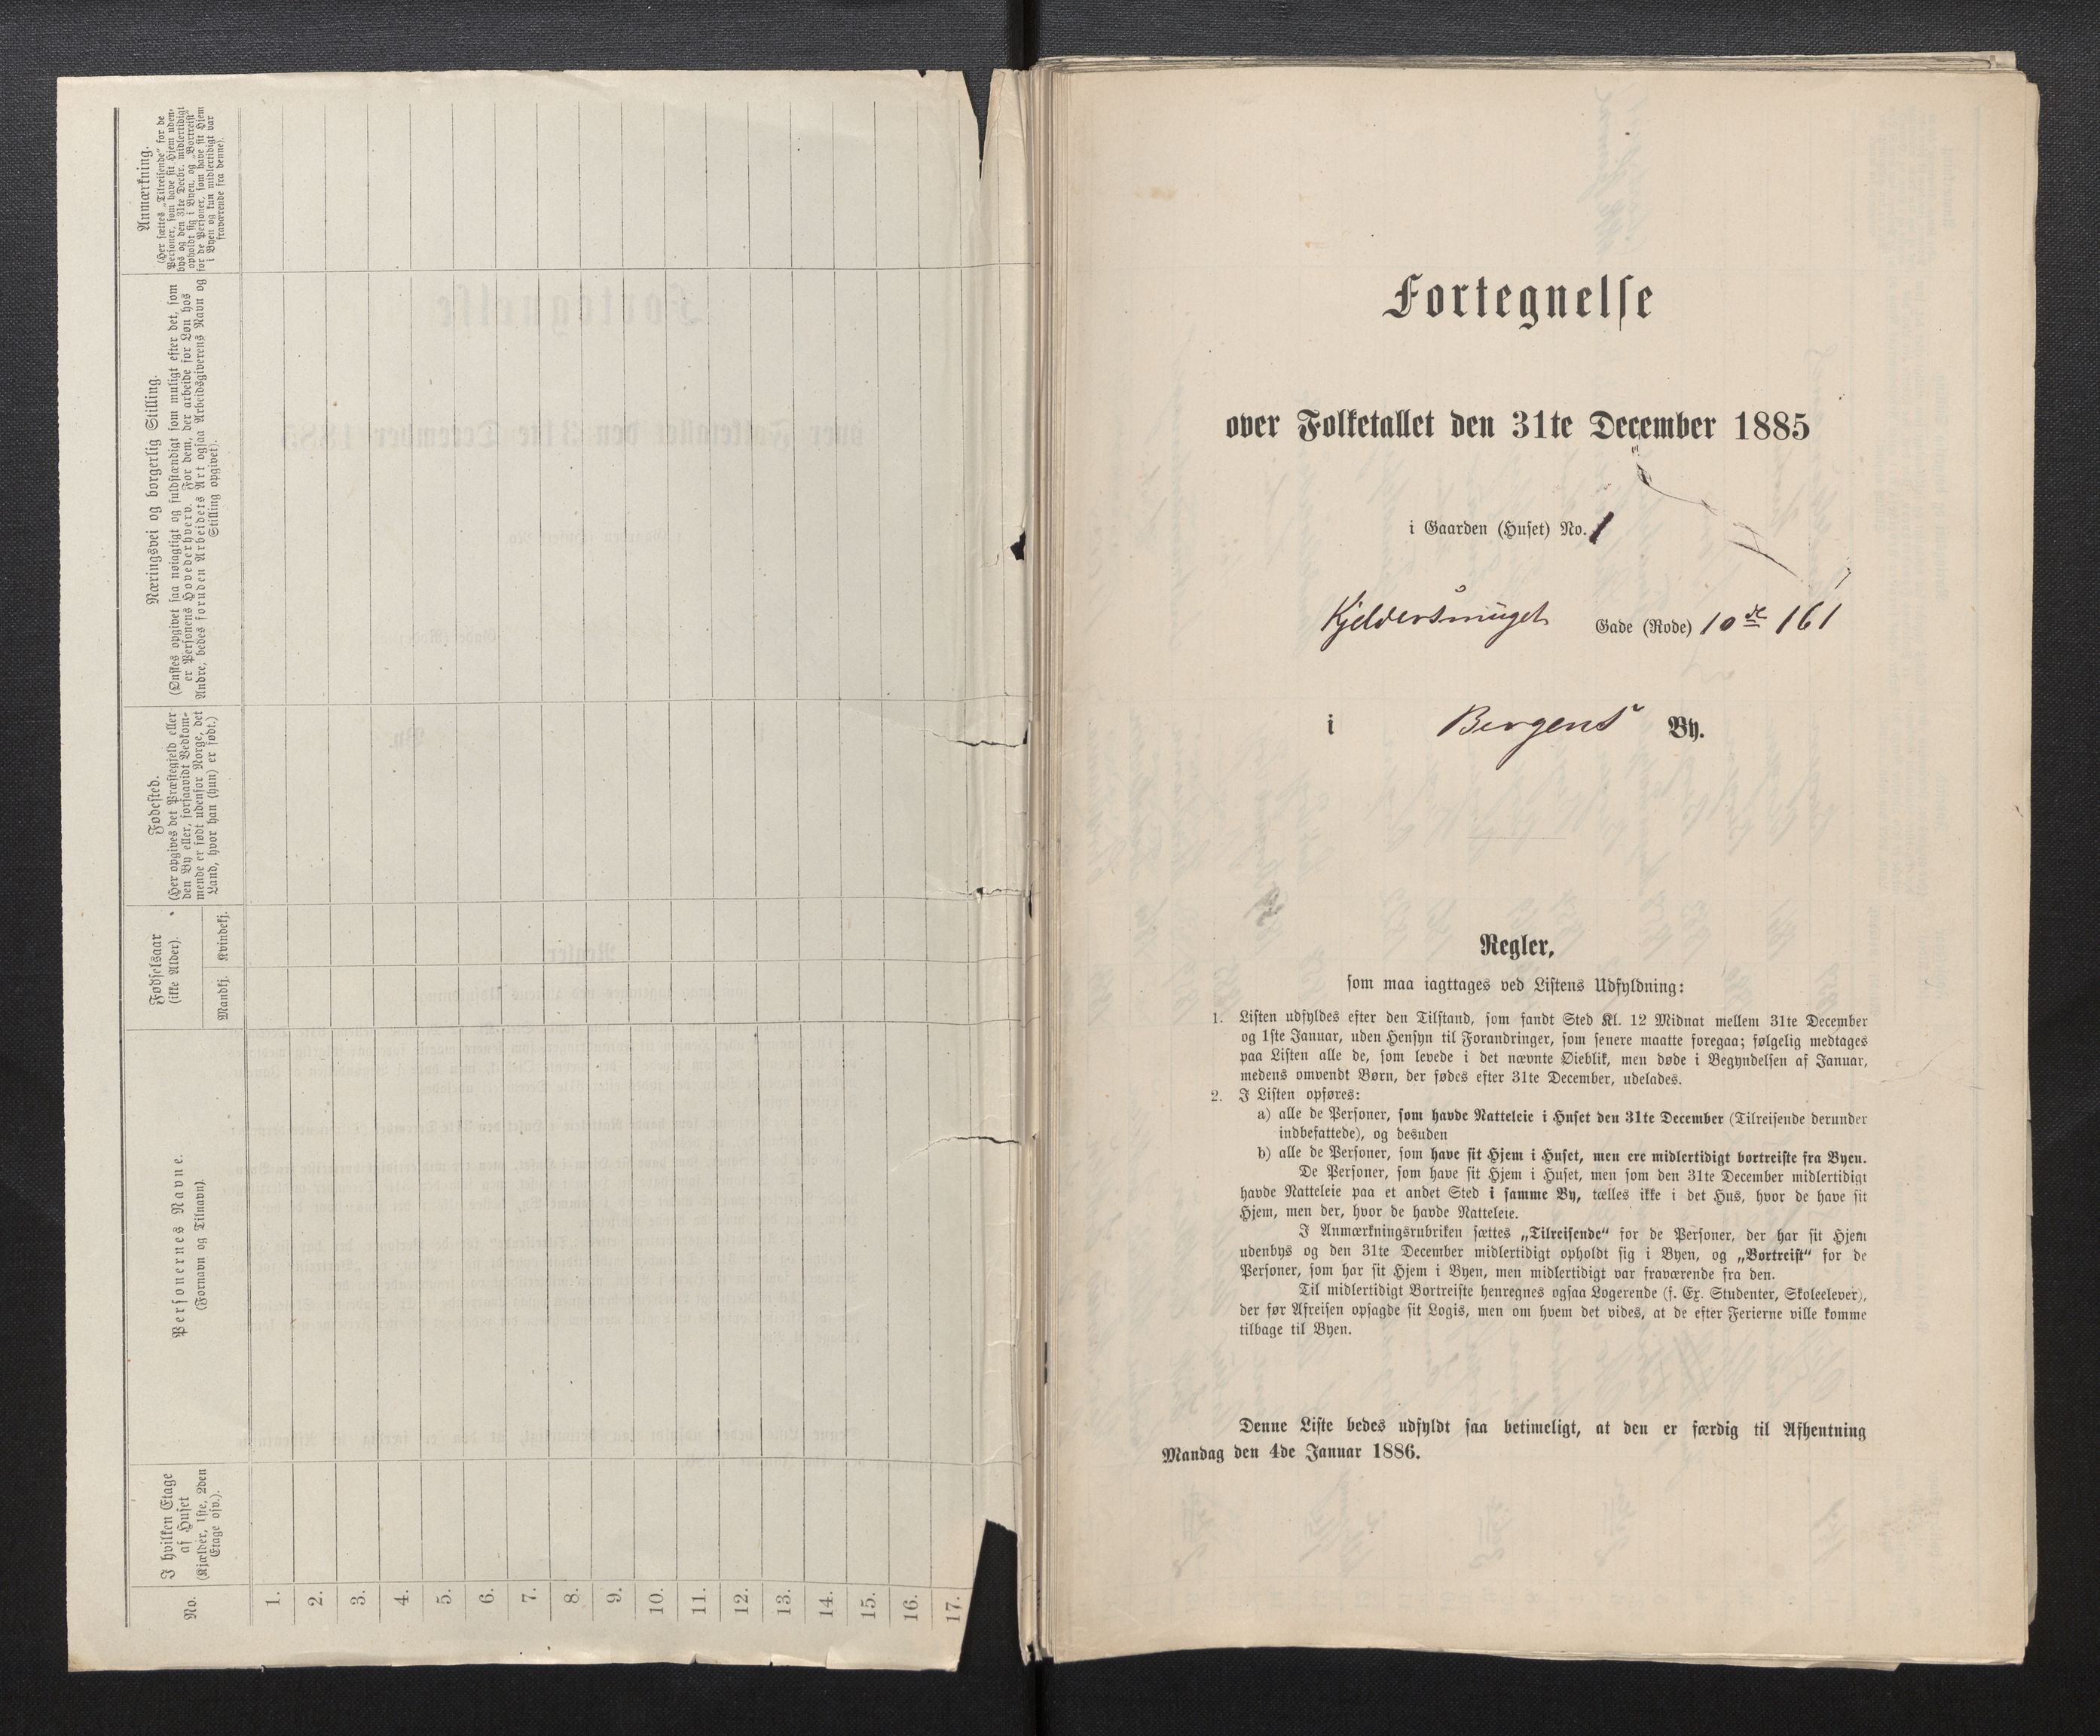 Anmærkning.
(Her sættes „Tilreisende" for de
Personer, som have sit Hjem uden-
bys og den 31te Decbr. midlertidigt
opholdt sig i Byen, og „Bortreist"
for de Personer, som have sit Hjem
i Byen og kun midlertidigt var
fraværende fra denne).
Næringsvei og borgerlig Stilling.
(Ønskes opgivet saa nøiagtigt og fuldstændigt som muligt efter det, som
er Personens Hovederhverv. For dem, der arbeide for Løn hos
Andre, bedes foruden Arbeidets Art ogsaa Arbeidsgiverens Navn og
Stilling opgivet).
Fødested.
(Her opgives det Præstegjeld eller
den By eller, forsaavidt Vedkom-
mende er født udenfor Norge, det
Land, hvor han (hun) er født.)
Fødselsaar
(ikke Alder).
Kvindekj.
Mandkj.
Personernes Navne.
(Fornavn og Tilnavn).
I hvilken Etage
af Huset
(Kjælder, 1ste, 2den
Etage osv.).
No.
1.
2.
3.
4.
5.
6.
7.
8.
9.
10.
11.
12.
13.
14.
15.
16.
17.
Fortegnelse
over Folketallet den 31te December 1885
i Gaarden (Huset) No. 1
Kjeldersmuget Gade (Rode) 10de 161
i Bergens By.
Regler,
som maa iagttages ved Listens Udfyldning:
1. Listen udfyldes efter den Tilstand, som fandt Sted Kl. 12 Midnat mellem 31te December
og 1ste Januar, uden Hensyn til Forandringer, som senere maatte foregaa; følgelig medtages
paa Listen alle de, som levede i det nævnte Øieblik, men døde i Begyndelsen af Januar,
medens omvendt Børn, der fødes efter 31te December, udelades.
2. I Listen opføres:
a) alle de Personer, som havde Natteleie i Huset den 31te December (Tilreisende derunder
indbefattede), og desuden
b) alle de Personer, som have sit Hjem i Huset, men ere midlertidigt bortreiste fra Byen.
De Personer, som have sit Hjem i Huset, men som den 31te December midlertidigt
havde Natteleie paa et andet Sted i samme By, tælles ikke i det Hus, hvor de have sit
Hjem, men der, hvor de havde Natteleie.
I Anmærkningsrubriken sættes „Tilreisende" for de Personer, der har sit Hjem
udenbys og den 31te December midlertidigt opholdt sig i Byen, og „Bortreist" for de
Personer, som har sit Hjem i Byen, men midlertidigt var fraværende fra den.
Til midlertidigt Bortreiste henregnes ogsaa Logerende (f. Ex. Studenter, Skoleelever),
der før Afreisen opsagde sit Logis, men om hvem det vides, at de efter Ferierne ville komme
tilbage til Byen.
Denne Liste bedes udfyldt saa betimeligt, at den er færdig til Afhentning
Mandag den 4de Januar 1886.